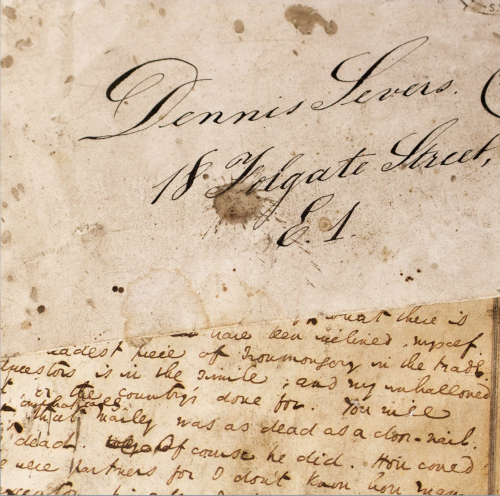 Dennis Severs.
18 Folgate Street,
E. 1.
what there is
have been inclined, myself,
deadest piece of Ironmongery in the trade.
ancestors is in the simile; and my unhallowed
or the country's done for. You will
that Marley was as dead as a door-nail.
dead. Of course he did. How could
were partners for I don't know how many